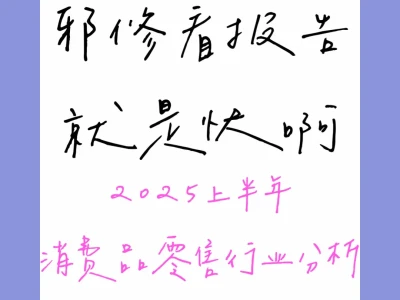 邪修看报告
就是快啊
2025上半年
消费品零售行业分析